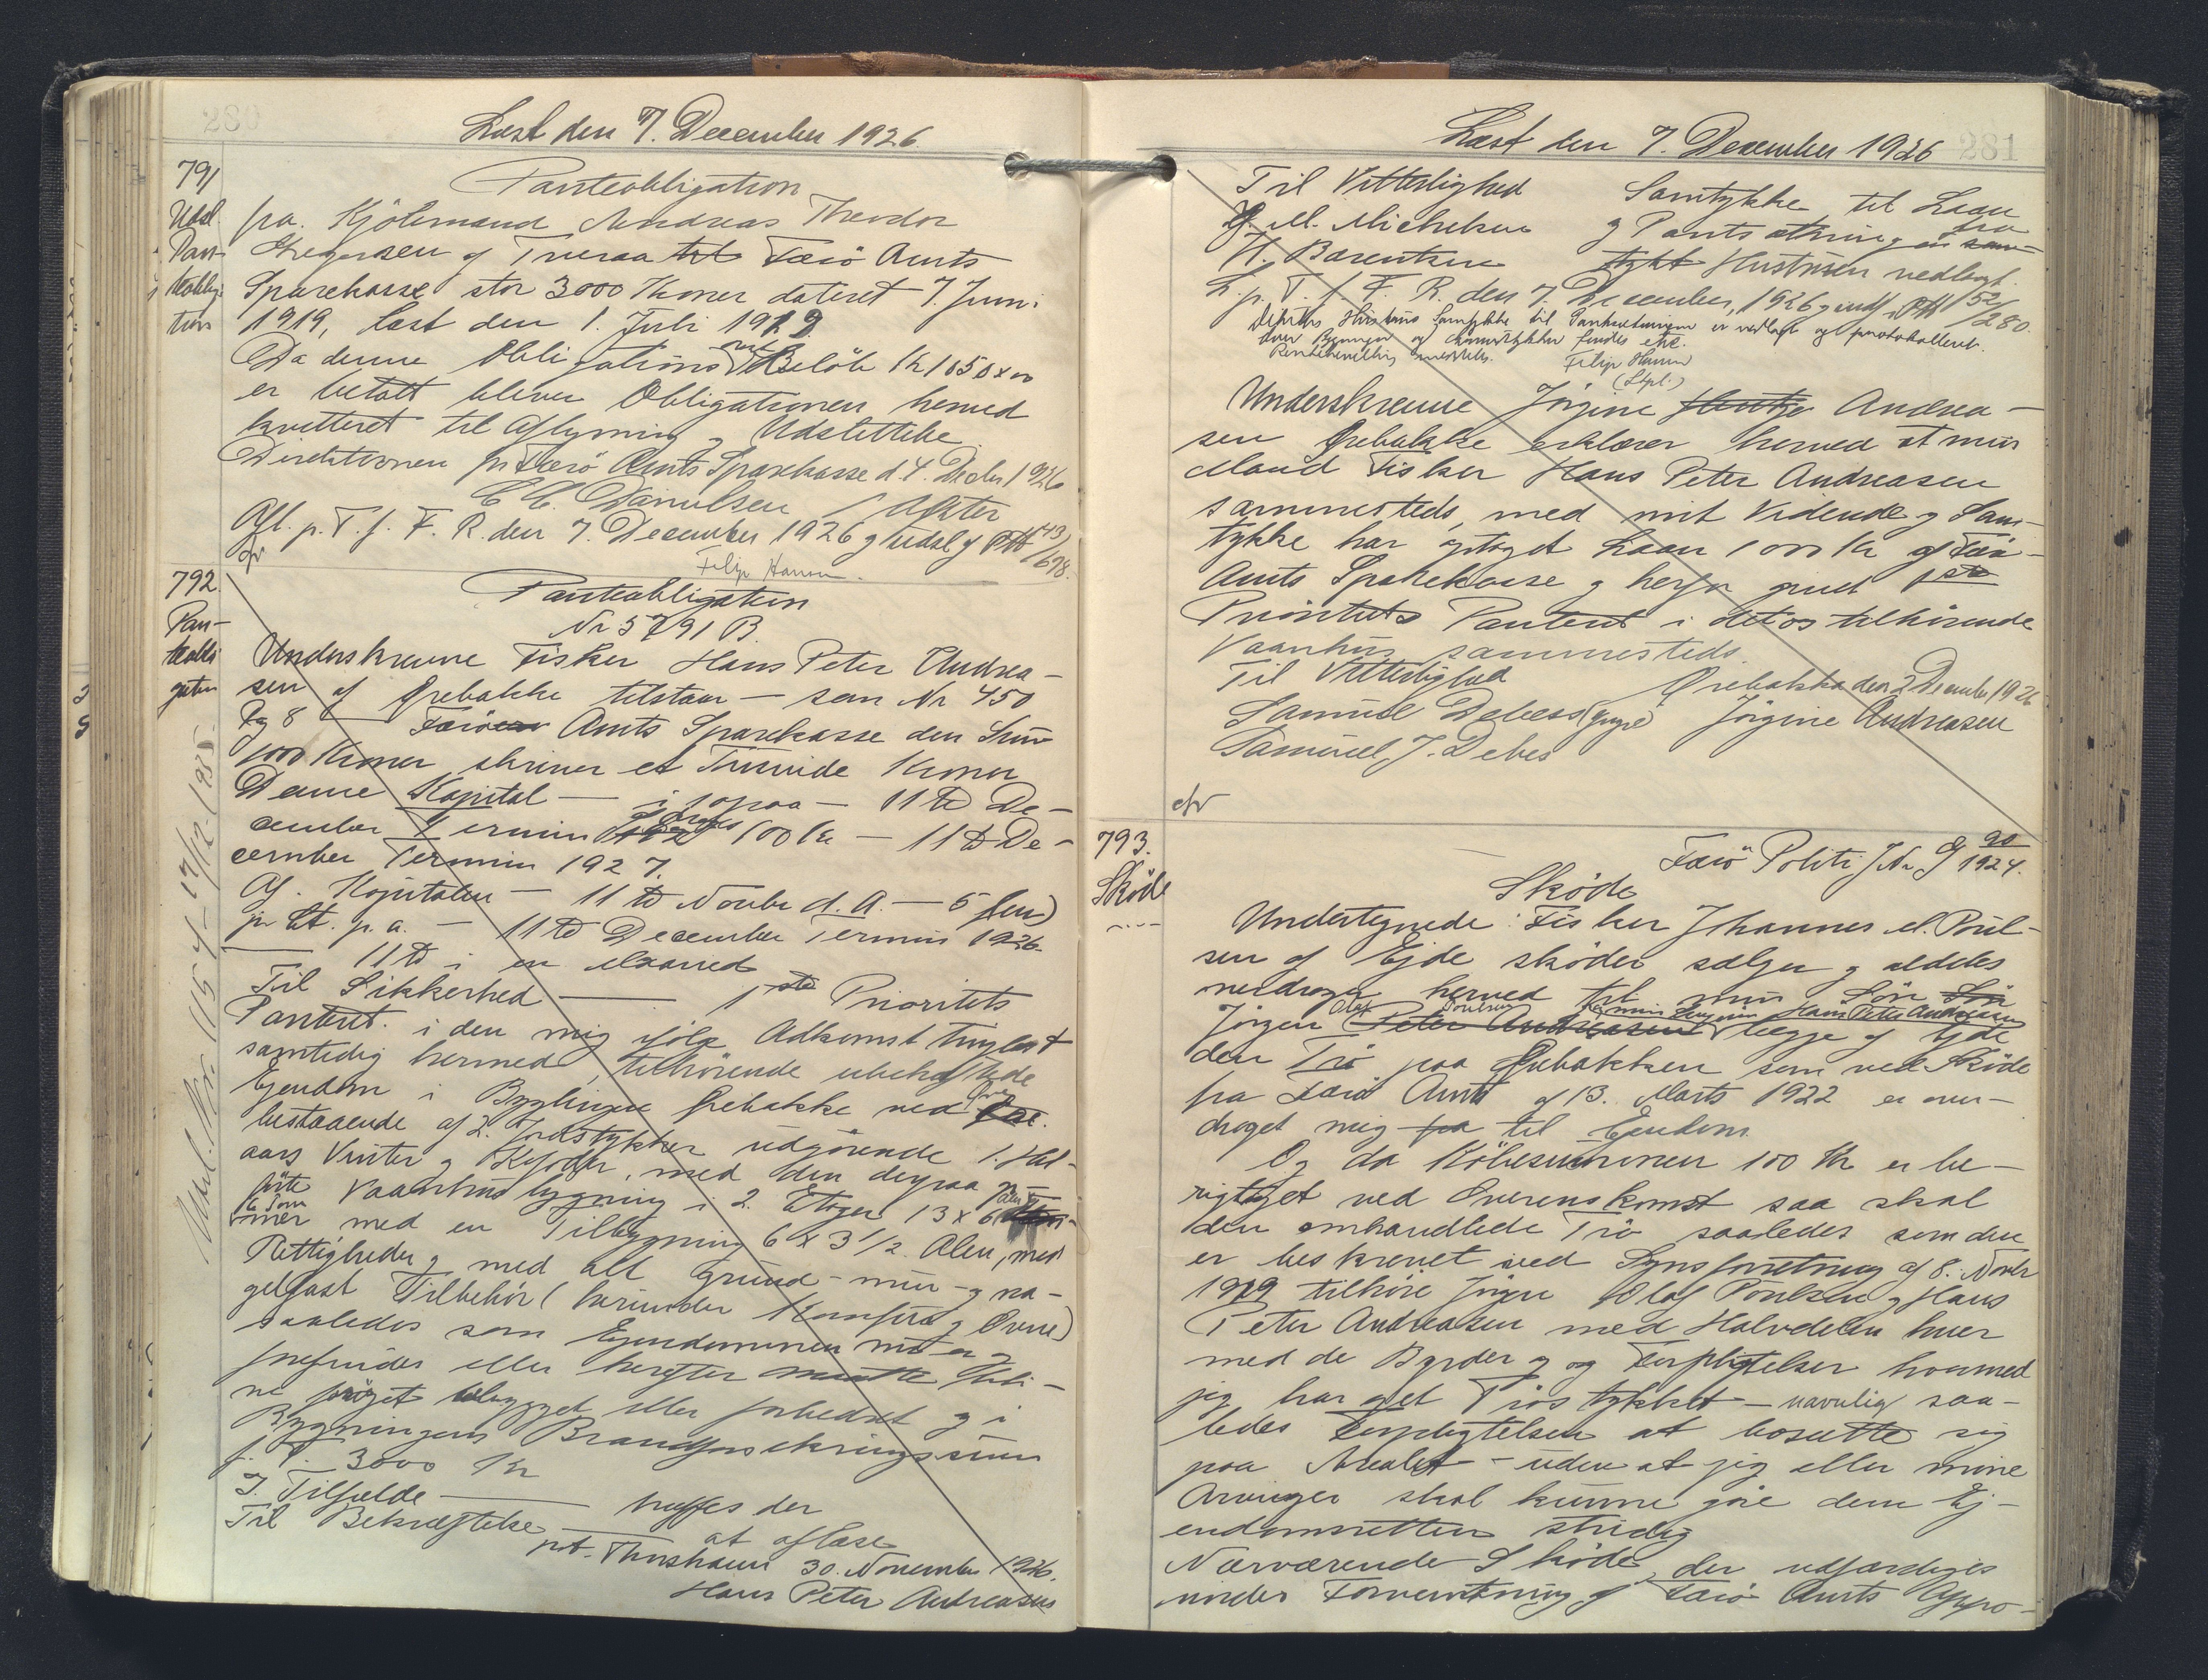 280
Læst den 7. December 1926.
791
Udsl.
Pan-
teobliga-
tion
Panteobligation
fra Kjöbmand Andreas Theodor
Gregersen af Tveraa til Færö Amts
Sparekasse stor 3000 Kroner dateret 7. Juni
1919, læst den 1. Juli 1919.
Da denne Obligations rest Belöb Kr 1050 x 00
er betalt bliver Obligationen herved
kvitteret til Aflysning og Udslettelse
Direktionen for Færö Amts Sparekasse d. 4. Decbr 1926
C. C. Danielsen / Akter
Afl. p. T. f. F. R. den 7. December 1926 og udsl. af 43/698.
Filip Hansen.
792
Pan-
teobli
gation
Panteobligation
Nr 5791 B.
Underskrevne Fisker Hans Peter Andrea-
sen af Ørebakke tilstaar — som Nr 450
Pg 8 — Færö Amts Sparekasse den Sum
1000 Kroner skriver et Tusinde Kroner
Denne Kapital — i 10 paa — 11 te De-
cember Termin 100 Kr — 11 te De-
cember Termin 1927.
Af Kapitalen — 11 te Novbr d. A. — 5 (fem)
pr. Ct. p. a. — 11 te December Termin 1926.
— 11 te i en Maaned
Til Sikkerhed — 1ste Prioritets
Panteret i den mig ifölge Adkomst tinglæst
samtidig hermed, tilhörende ubehæftede
Ejendom i Bygdingen Ørebakke ved
bestaaende af 2. Jordstykker udgörende 1. Hal-
aars Vinter og Kofoder, med den derpaa op-
förte Vaanhusbygning i 2. Etager 13 x 6
med en Tilbygning 6 x 3 1/2 Alen, med
Rettigheder og med alt grund- mur- og na-
gelfast Tilbehör (herunder Komfur og Ovne)
saaledes som Ejendommen nu er og
forefindes eller herefter maatte bli-
ve foröget tilbygget eller forbedret og i
Bygningens Brandforsikringssum
f. T. 3000 Kr
I Tilfælde — træffes der
Til Bekræftelse — at aflæse
pt. Thorshavn 30. November 1926.
Hans Peter Andreasen
Udsl. Nr. 1115 af 17/12-1935
281
Læst den 7. December 1926
Til Vitterlighed
M. Michelsen
H. Barentsen
Samtykke til Laan
og Pantsætningen fra
Hustruen vedlagt.
L. p. T. f. F. R. den 7. December 1926 og indf. i 52/280.
Debitors Hustrus Samtykke til Pantsætningen er vedlagt og protokolleret.
Rentebevilling meddeles.
Filip Hansen
(Stpl.)
Underskrevne Jörgine Andrea-
sen Ørebakke erklærer herved at min
Mand Fisker Hans Peter Andreasen
sammesteds, med mit Vidende og Sam-
tykke har optaget Laan 1000 Kr af Færö
Amts Sparekasse og herfor givet 1ste
Prioritets Panteret i det os tilhörende
Vaanhus sammesteds.
Til Vitterlighed
Ørebakke den 2 December 1926
Samuel Debess (yngre) Jörgine Andreasen
Samuel J. Debes
793.
Sköde
Færö Politi J. Nr. G 90/1924.
Sköde
Undertegnede Fisker Johannes M. Poul-
sen af Ejde sköder sælger og aldeles
overdrager herved til min Sön
Jörgen Olaf Poulsen og min Svigersön Hans Peter Andreasen begge af Ejde
den Trö paa Ørebakken som ved Sköde
fra Færö Amt af 13. Marts 1922 er over-
draget mig til Ejendom
Og da Köbesummen 100 Kr er be-
rigtiget ved Overenskomst saa skal
den omhandlede Trö saaledes som den
er beskrevet ved Synsforretning af 8. Novbr
1919 tilhöre Jörgen Olaf Poulsen og Hans
Peter Andreasen med Halvdelen hver
med de Byrder og Forpligtelser hvormed
jeg har ejet Tröstykket - navnlig saa-
ledes Forpligtelsen at bosætte sig
paa Arealet - uden at jeg eller mine
Arvinger skal kunne göre dem Ej-
endomsretten stridig
Nærværende Sköde, der udfærdiges
under Forventning af Færö Amts Appro-